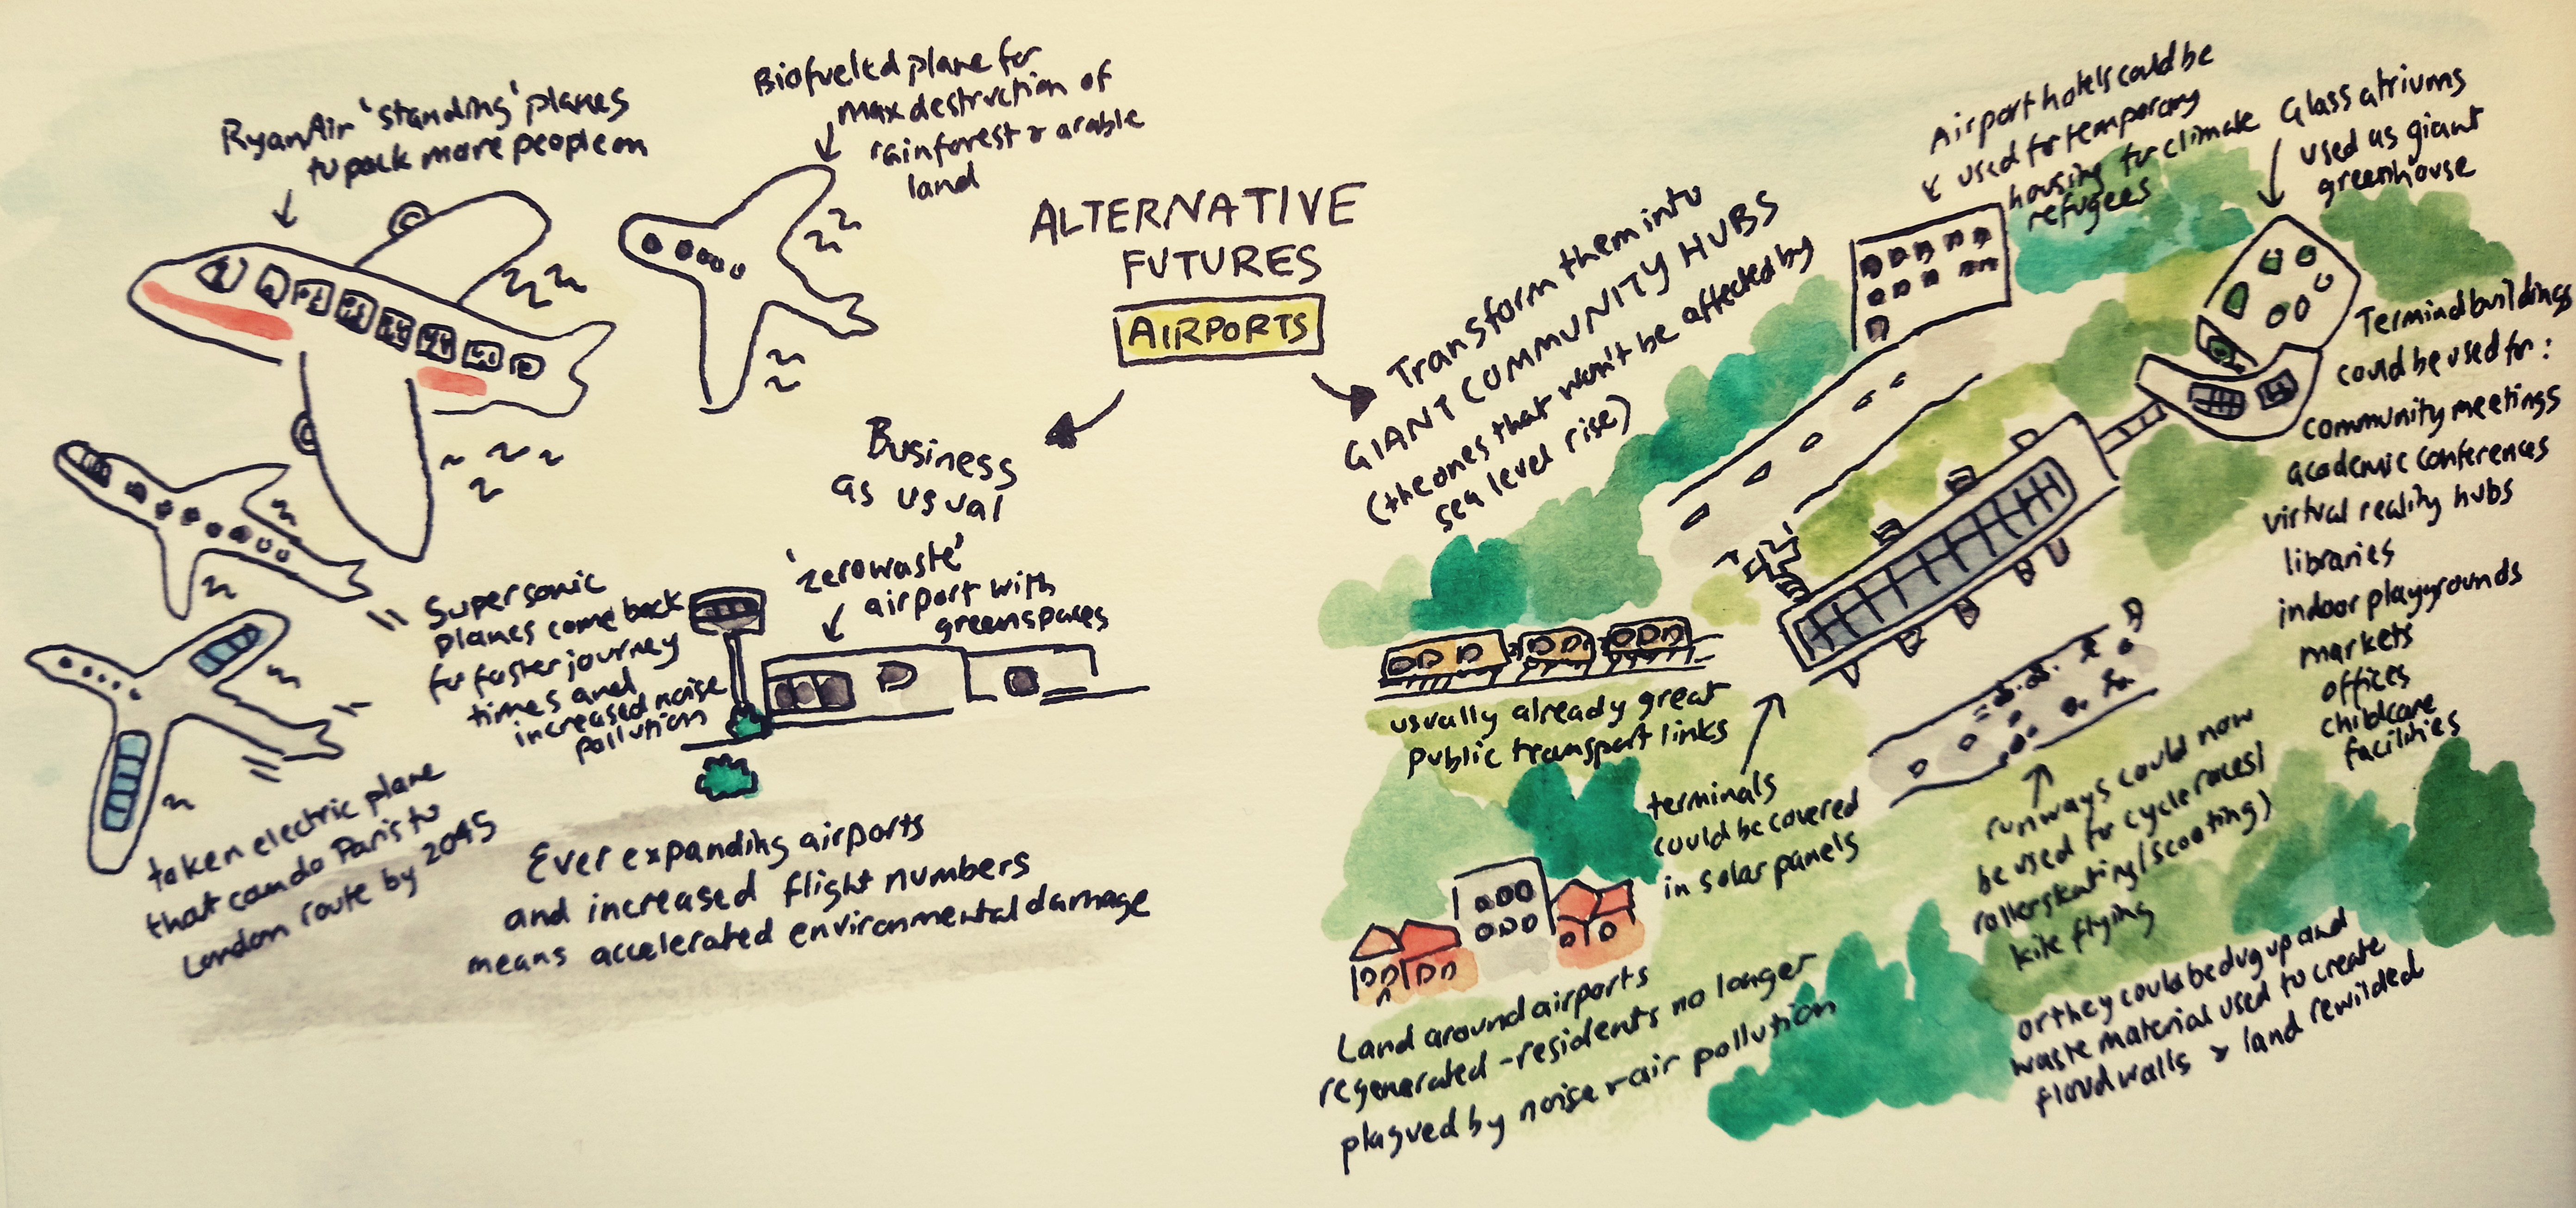 ALTERNATIVE
FUTURES
AIRPORTS
Business
as usual
RyanAir 'standing' planes
to pack more people on
Biofueled plane for
max destruction of
rainforest & arable
land
Supersonic
planes come back
for faster journey
times and
increased noise
pollution
'zero waste'
airport with
greenspaces
token electric plane
that can do Paris to
London route by 2045
Ever expanding airports
and increased flight numbers
means accelerated environmental damage
Transform them into
GIANT COMMUNITY HUBS
(the ones that won't be affected by
sea level rise)
Airport hotels could be
used for temporary
housing for climate
refugees
Glass atriums
used as giant
greenhouse
Terminal buildings
could be used for:
community meetings
academic conferences
virtual reality hubs
libraries
indoor playgrounds
markets
offices
childcare
facilities
usually already great
public transport links
terminals
could be covered
in solar panels
runways could now
be used for cycle races/
rollerskating/scooting)
kite flying
or they could be dug up and
waste material used to create
flood walls & land rewilded
Land around airports
regenerated - residents no longer
plagued by noise & air pollution